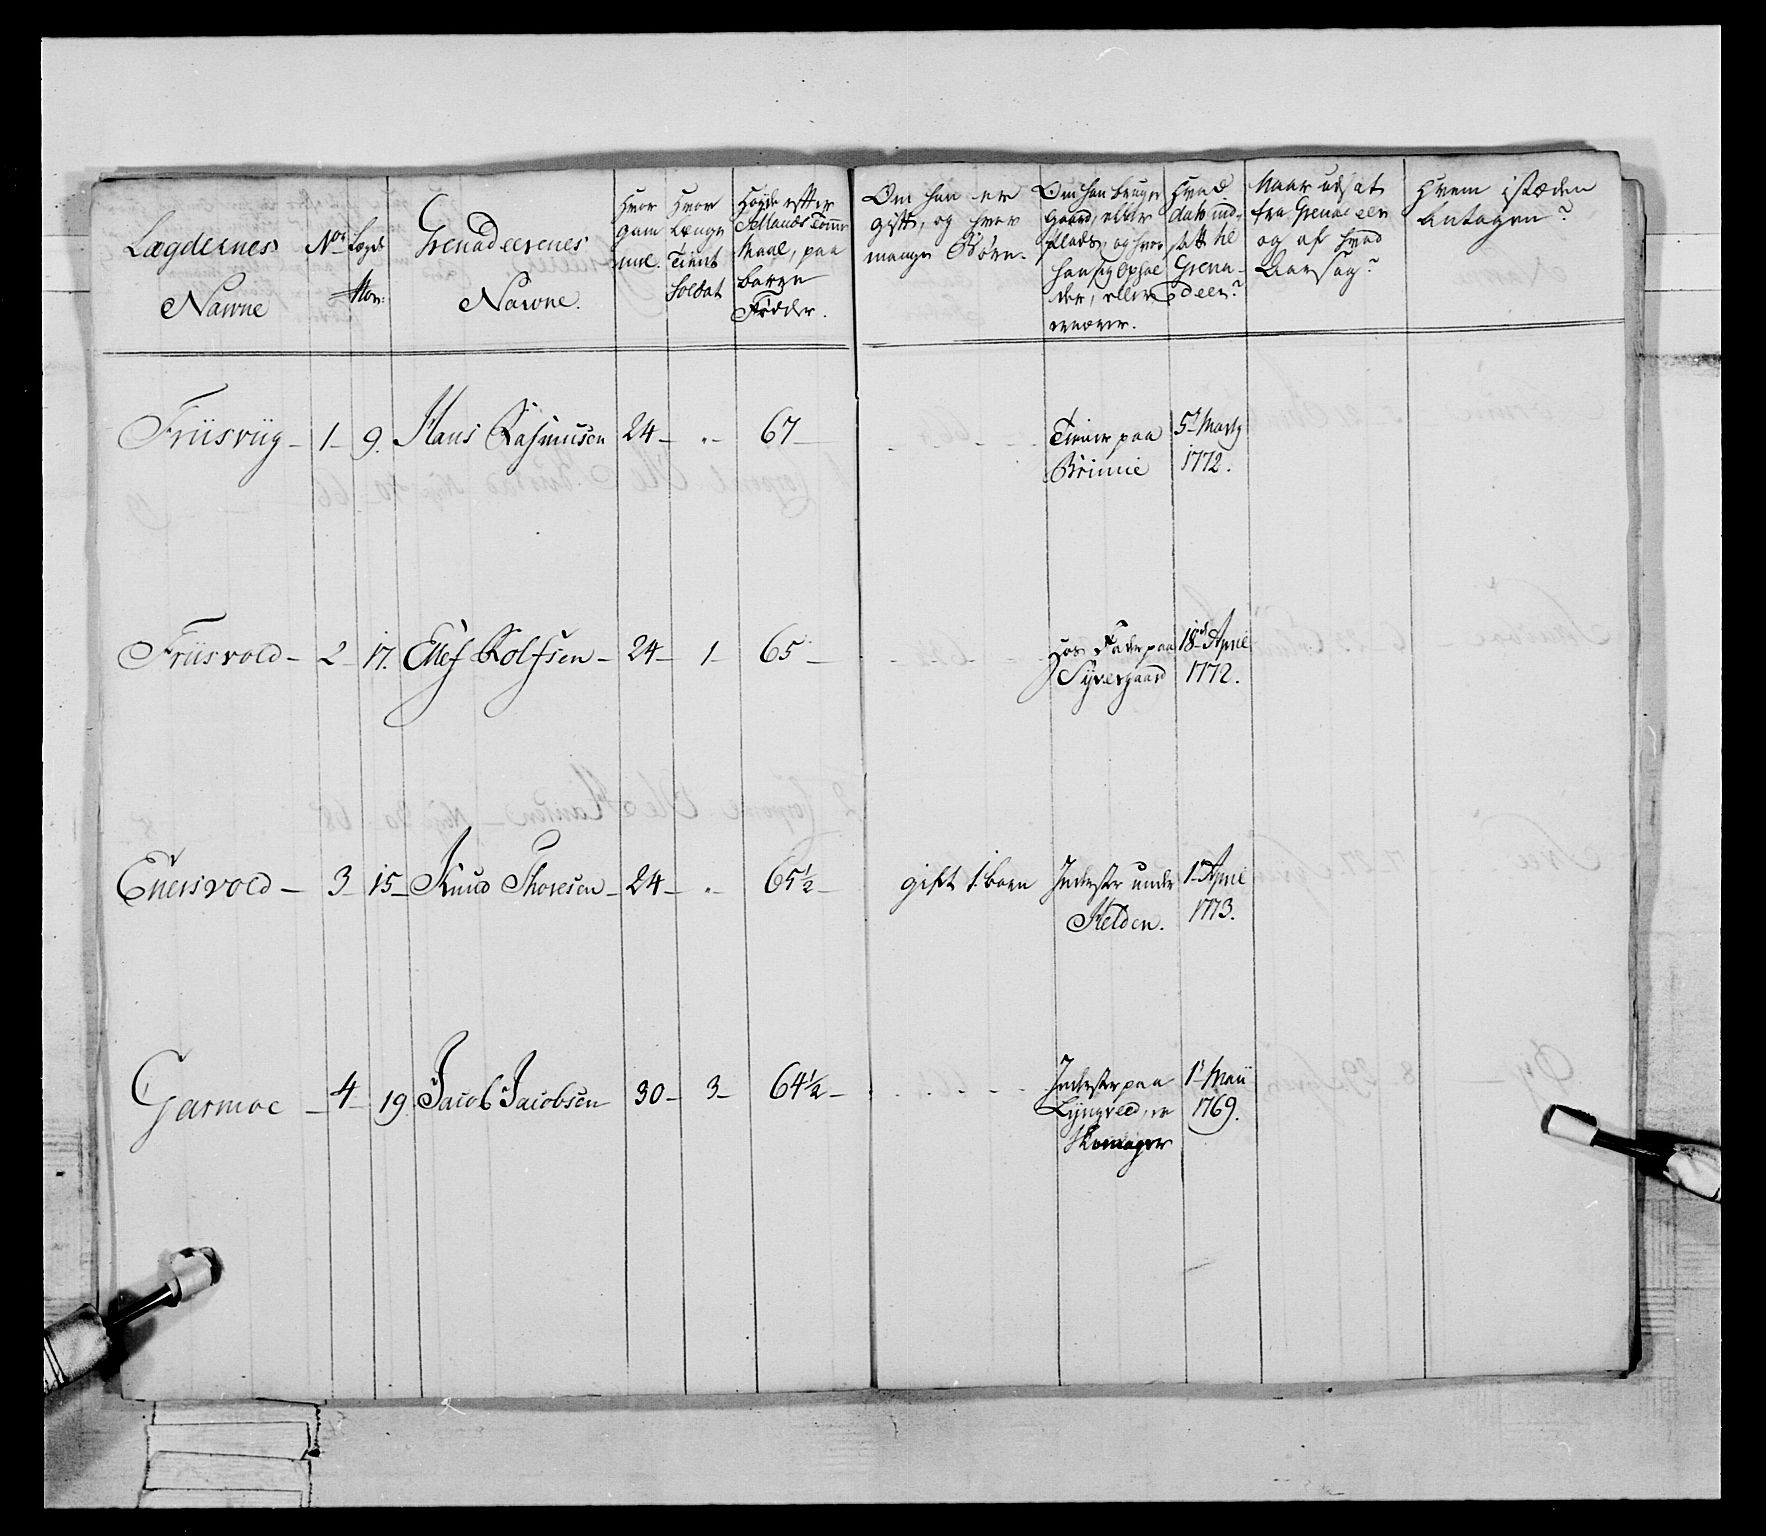 Lægdernes Nawne
No:
Lægds Nor:
Grenadeerenes Nawne.
Hvor gam mel.
Hvor Længe Tient Soldat
Høyde efter Sellands Tomme Maal, paa barre Fødder.
Om han er gift, og hvor mange Børn.
Om han bruger Gaard, eller Plads, og hvor han sig Ophol der, eller ernærer.
Hvad dato ind- satt til Grena- deer?
Naar udsat fra Grenadeer og af hvad Aarsag?
Hvem istæden Antagen?
Friisviig - 1 - 9. Hans Rasmusen 24 - .. - 67 -
Tiener paa Brimie
5t Marty 1772.
Friisvold - 2 - 17. Ellef Rolfsen - 24 - 1 - 65 -
Hos Fader paa Syvergaard
18de April 1772.
Enersvold - 3 - 15 - Knud Thoresen - 24 - .. 65½ -
gift 1: barn
Inderster under Kelden.
1t April 1773.
Garmoe - 4 - 19 Jacob Jacobsen 30 - 3 - 64½ -
Inderster paa Lyngved, er Skomager
1t Maii 1769.